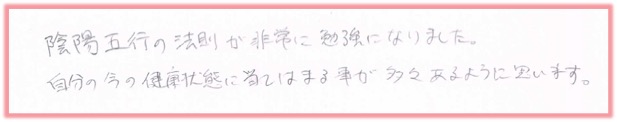 陰陽五行の法則が非常に勉強になりました。
自分の今の健康状態に当てはまる事が多々あるように思います。